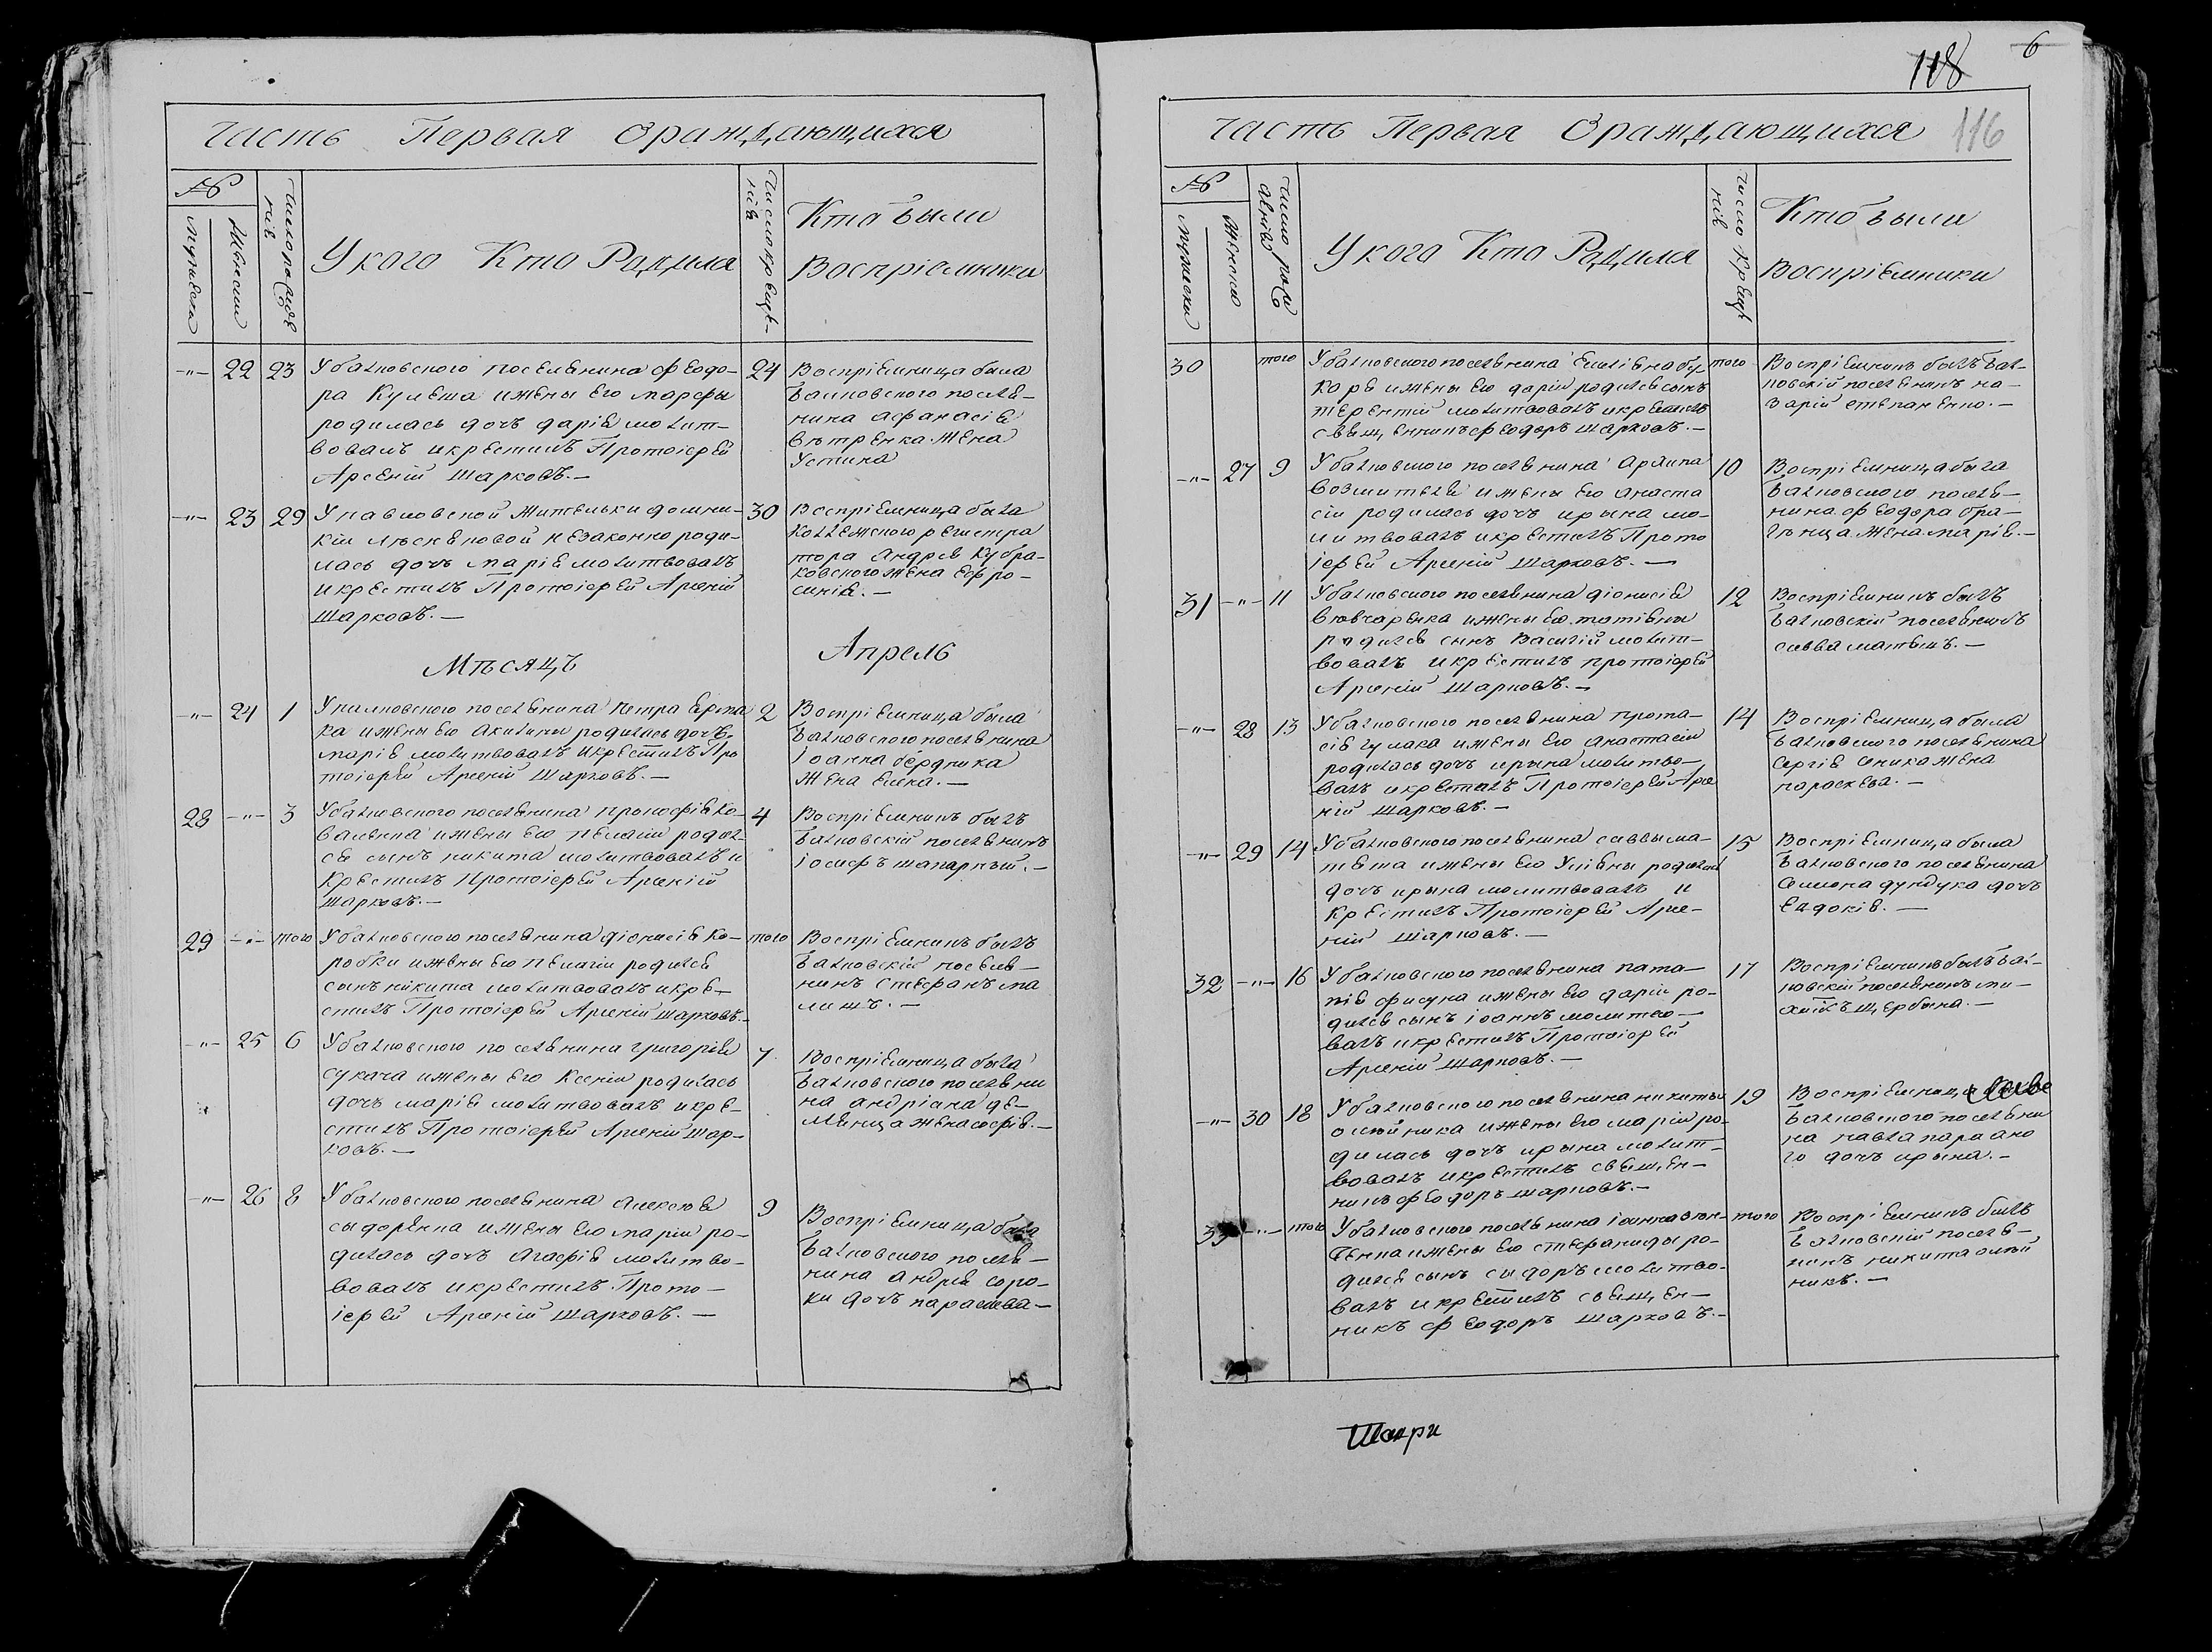 118 6
Часть Первая Ораждающихся
№
мужеска
женски
Число рожде
нія
У кого Кто Радился
Число креще-
нія
Кто были
Воспріемники
-"- 22 23
У балковского поселенина феодо-
ра Кулеша ижены его марфы
родилась дочь даріе молит-
вовалъ икрестилъ Протоіерей
Арсеній Шарковъ.—
24
Воспріемница была
балковского поселе-
нина афанасіе
ветренка жена
Устина
-"- 23 29
У павловской жительки домни-
кіи незаконно роди-
лась дочь маріе молитвовалъ
икрестилъ Протоіерей Арсеній
Шарковъ.—
30
Воспріемница была
коллежского регистра
тора андрее кубра-
ковского жена ефро-
синіе.—
Мѣсяцъ Апрель
-"- 24 1
поселенина петра ерма
ка ижены его акилины родилась дочь
маріе молитвовалъ икрестилъ Про
тоіерей Арсеній Шарковъ.—
2
Воспріемница была
балковского поселенина
іоанна бердника
жена елена.—
28 -"- 3
У балковского поселенина прокофіе ко-
валенка ижены его пелагіи родил-
се сынъ никита молитвовалъ и
крестилъ Протоіерей Арсеній
Шарковъ.—
4
Воспріемникъ былъ
балковскій поселенинъ
іосифъ шапарный.—
29 -"- того
У балковского поселенина діонисіе ко-
робки ижены его пелагіи родилсе
сынъ никита молитвовалъ икре-
стилъ Протоіерей Арсеній Шарковъ.—
того
Воспріемникъ былъ
балковскій поселе-
нинъ стефанъ ма
лишъ.—
-"- 25 6
У балковского поселенина григоріе
сукача ижены его Ксеніи родилась
дочь маріе молитвовалъ икре-
стилъ Протоіерей Арсеній Шар-
ковъ.—
7
Воспріемница была
балковского поселени
на андріана де-
менца жена софіе.—
-"- 26 8
У балковского поселенина алексее
сидоренка ижены его маріи ро-
дилась дочь агафіе молитво-
вовалъ икрестилъ Прото-
іерей Арсеній Шарковъ.—
9
Воспріемница была
балковского поселе-
нина андрее соро-
ки дочь параскева—
Часть Первая Ораждающихся 116
№
мужески
женски
Число рож
денія
У кого Кто Радился
Число Креще
нія
Кто были
Воспріемники
30 того
У балковского поселенина
ижены его даріи родилсе сынъ
терентій молитвовалъ икрестилъ
священникъ феодоръ Шарковъ.—
того
Воспріемникъ былъ бал-
ковскій поселенинъ на-
зарій степаненко.—
-"- 27 9
У балковского поселенина архипа
ижены его анаста
сіи родилась дочь ирына мо-
литвовалъ икрестилъ Прото
іерей Арсеній Шарковъ.—
10
Воспріемница была
балковского поселе-
нина феодора бра-
жена маріе.—
31 -"- 11
У балковского поселенина діонисіе
вовчаренка ижены его татіяны
родилсе сынъ Василій молит-
вовалъ икрестилъ протоіерей
Арсеній Шарковъ.—
12
Воспріемникъ былъ
балковскій поселенинъ
савва матешъ.—
-"- 28 13
У балковского поселенина прота-
сіе гулака ижены его анастасіи
родилась дочь ирына молитво-
валъ икрестилъ Протоіерей Арсе
ній Шарковъ.—
14
Воспріемница была
балковского поселенина
Сергіе сника жена
параскева.—
-"- 29 14
У балковского поселенина саввы ма-
теша ижены его Уліяны родилась
дочь ирына молитвовалъ и
крестилъ Протоіерей Арсе-
ній Шарковъ.—
15
Воспріемница была
балковского поселенина
Семиона дундука дочь
Евдокіе.—
32 -"- 16
У балковского поселенина пата-
піе фисуна ижены его даріи ро-
дилсе сынъ іоаннъ молитво-
валъ икрестилъ Протоіерей
Арсеній Шарковъ.—
17
Воспріемникъ былъ бал-
ковскій поселенинъ ми-
хаилъ щербына.—
-"- 30 18
У балковского поселенина никиты
олейника ижены его маріи ро-
дилась дочь ирына молит-
вовалъ икрестилъ священ-
никъ феодоръ Шарковъ.—
19
Воспріемница
балковского поселени
на павла
дочь ирына.—
33 -"- того
У балковского поселенина іоанна
ижены его стефаниды ро-
дилсе сынъ сидоръ молитво-
валъ икрестилъ священ-
никъ феодоръ Шарковъ.—
того
Воспріемникъ былъ
балковскій поселе-
нинъ никита олей
никъ.—
Шарк